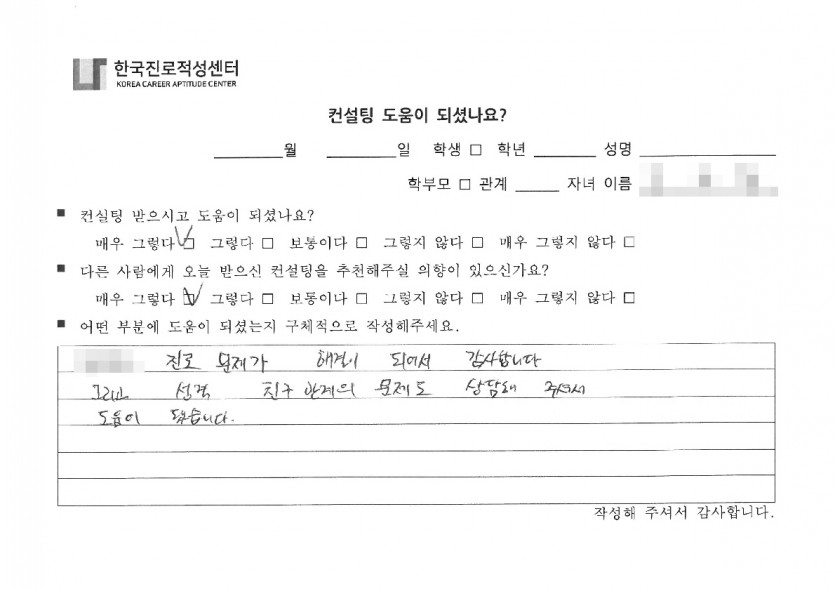 한국진로적성센터
KOREA CAREER APTITUDE CENTER
컨설팅 도움이 되셨나요?
______월 ______일 학생 □ 학년 ______ 성명 ______
학부모 □ 관계 ______ 자녀 이름
■ 컨실팅 받으시고 도움이 되셨나요?
매우 그렇다 ☑ 그렇다 □ 보통이다 □ 그렇지 않다 □ 매우 그렇지 않다 □
■ 다른 사람에게 오늘 받으신 컨설팅을 추천해주실 의향이 있으신가요?
매우 그렇다 ☑ 그렇다 □ 보통이다 □ 그렇지 않다 □ 매우 그렇지 않다 □
■ 어떤 부분에 도움이 되셨는지 구체적으로 작성해주세요.
진로 문제가 해결이 되어서 감사합니다
그리고 성격 친구 관계의 문제도 상담해 주셔서
도움이 됐습니다.
작성해 주셔서 감사합니다.